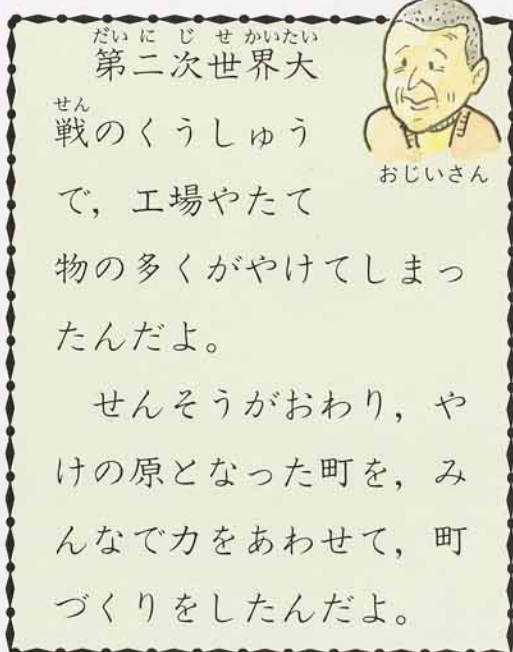 第二次世界大
だいにじせかいたい
戦のくうしゅう
せん
で，工場やたて
物の多くがやけてしまっ
たんだよ。
せんそうがおわり，や
けの原となった町を，み
んなで力をあわせて，町
づくりをしたんだよ。
おじいさん